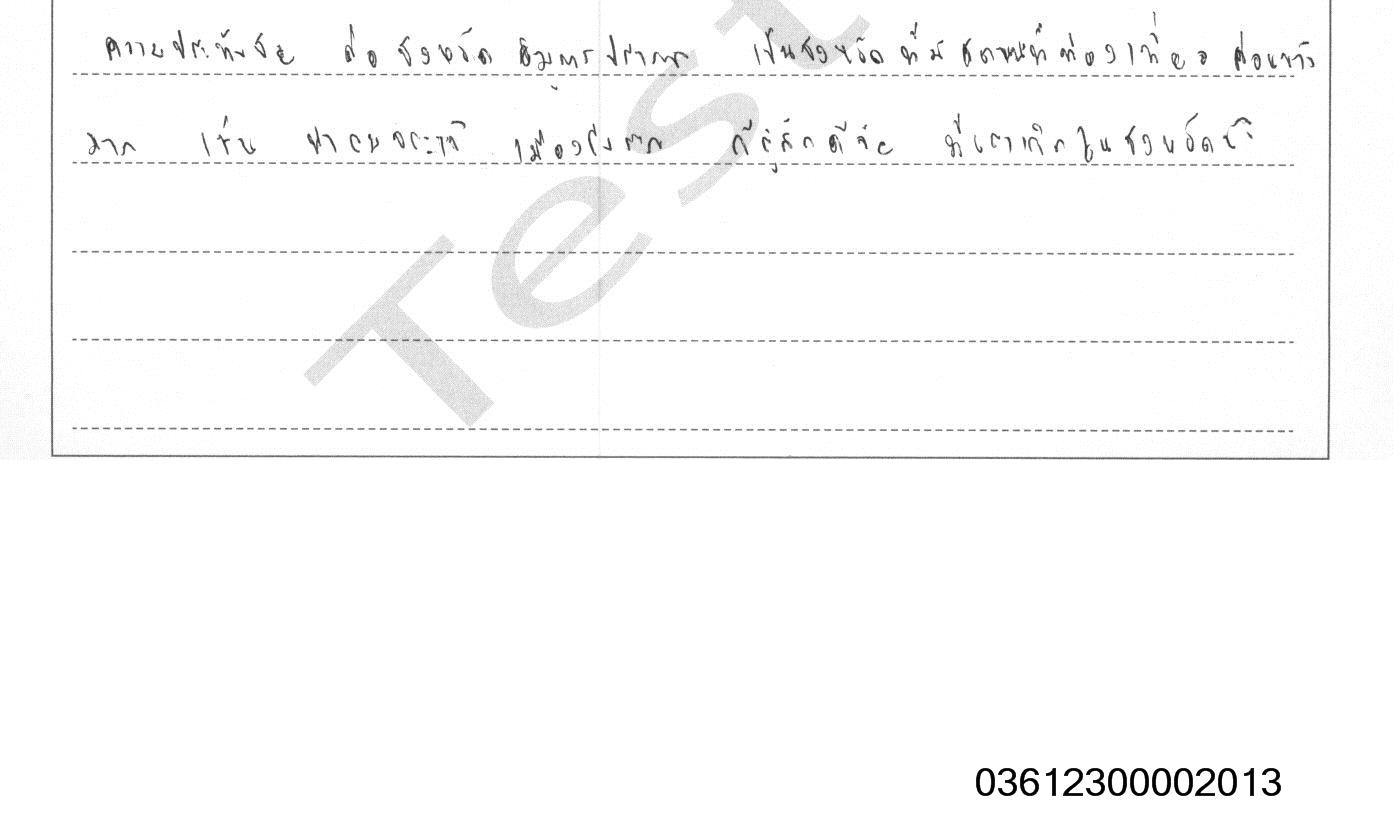 ความประทับใจ ต่อ จังหวัด สมุทรปราการ เป็นจังหวัดที่มีสถานที่ท่องเที่ยว ค่อนข้าง
มาก เช่น ฟาร์มจระเข้ เมืองโบราณ ก็รู้สึกดีใจ ที่เราเกิดในจังหวัดนี้
Test
03612300002013